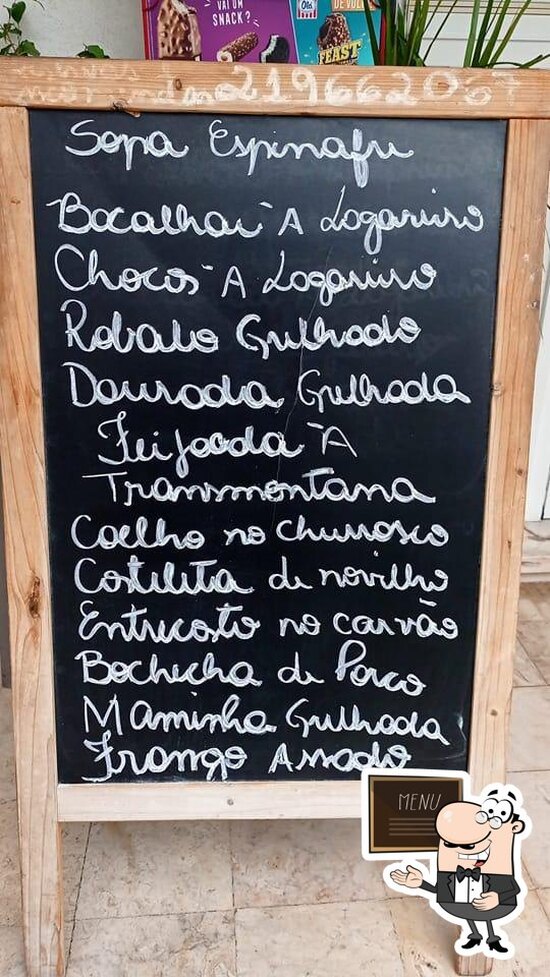 VAI UM
SNACK?
Olá
FEAST
219662067
Sopa Espinafre
Bacalhau À Lagareiro
Chocos À Lagareiro
Robalo Grelhado
Dourada Grelhada
Feijoada À
Transmontana
Coelho no churrasco
Costeleta de novilho
Entrecosto no carvão
Bochecha de Porco
Maminha Grelhada
Frango Assado
MENU